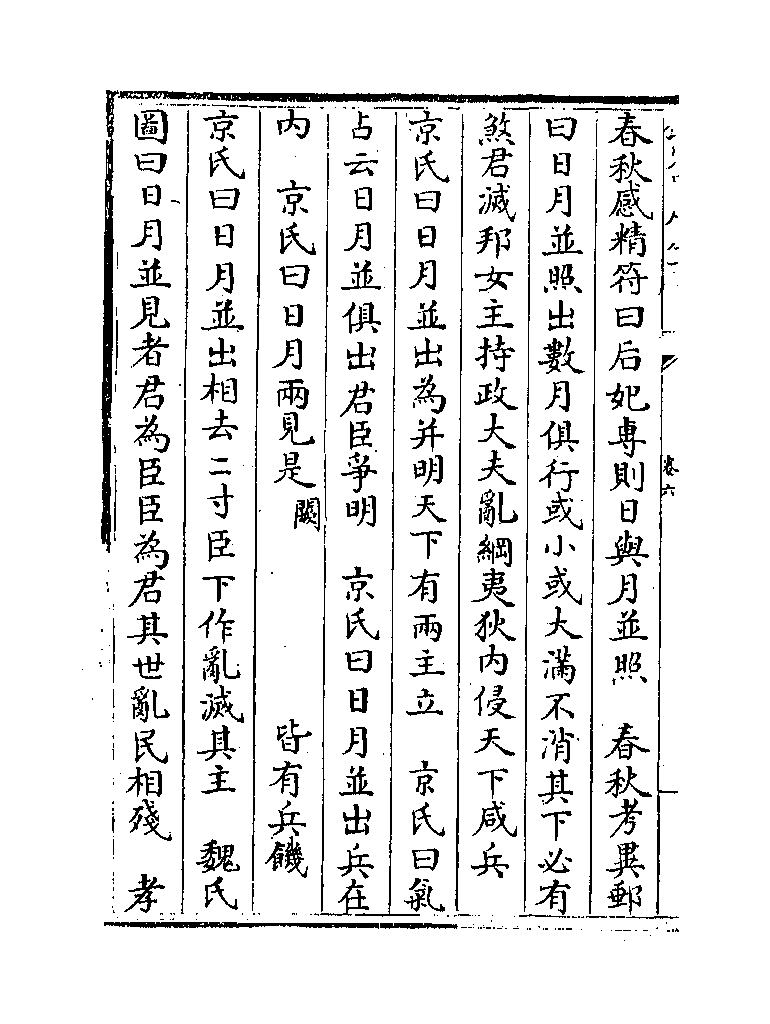 卷六
春秋感精符曰后妃專則日與月並照　春秋考異郵
曰日月並照出數月俱行或小或大滿不消其下必有
煞君滅邦女主持政大夫亂綱夷狄内侵天下咸兵
京氏曰日月並出為并明天下有兩主立　京氏曰氣
占云日月並俱出君臣爭明　京氏曰日月並出兵在
内　京氏曰日月兩見是闕　　　　　皆有兵饑
京氏曰日月並出相去二寸臣下作亂滅其主　魏氏
圖曰日月並見者君為臣臣為君其世亂民相殘　孝